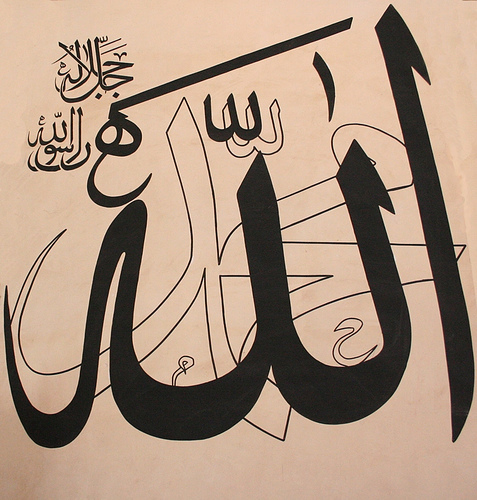 الله
محمد
جل جلاله
رسول الله